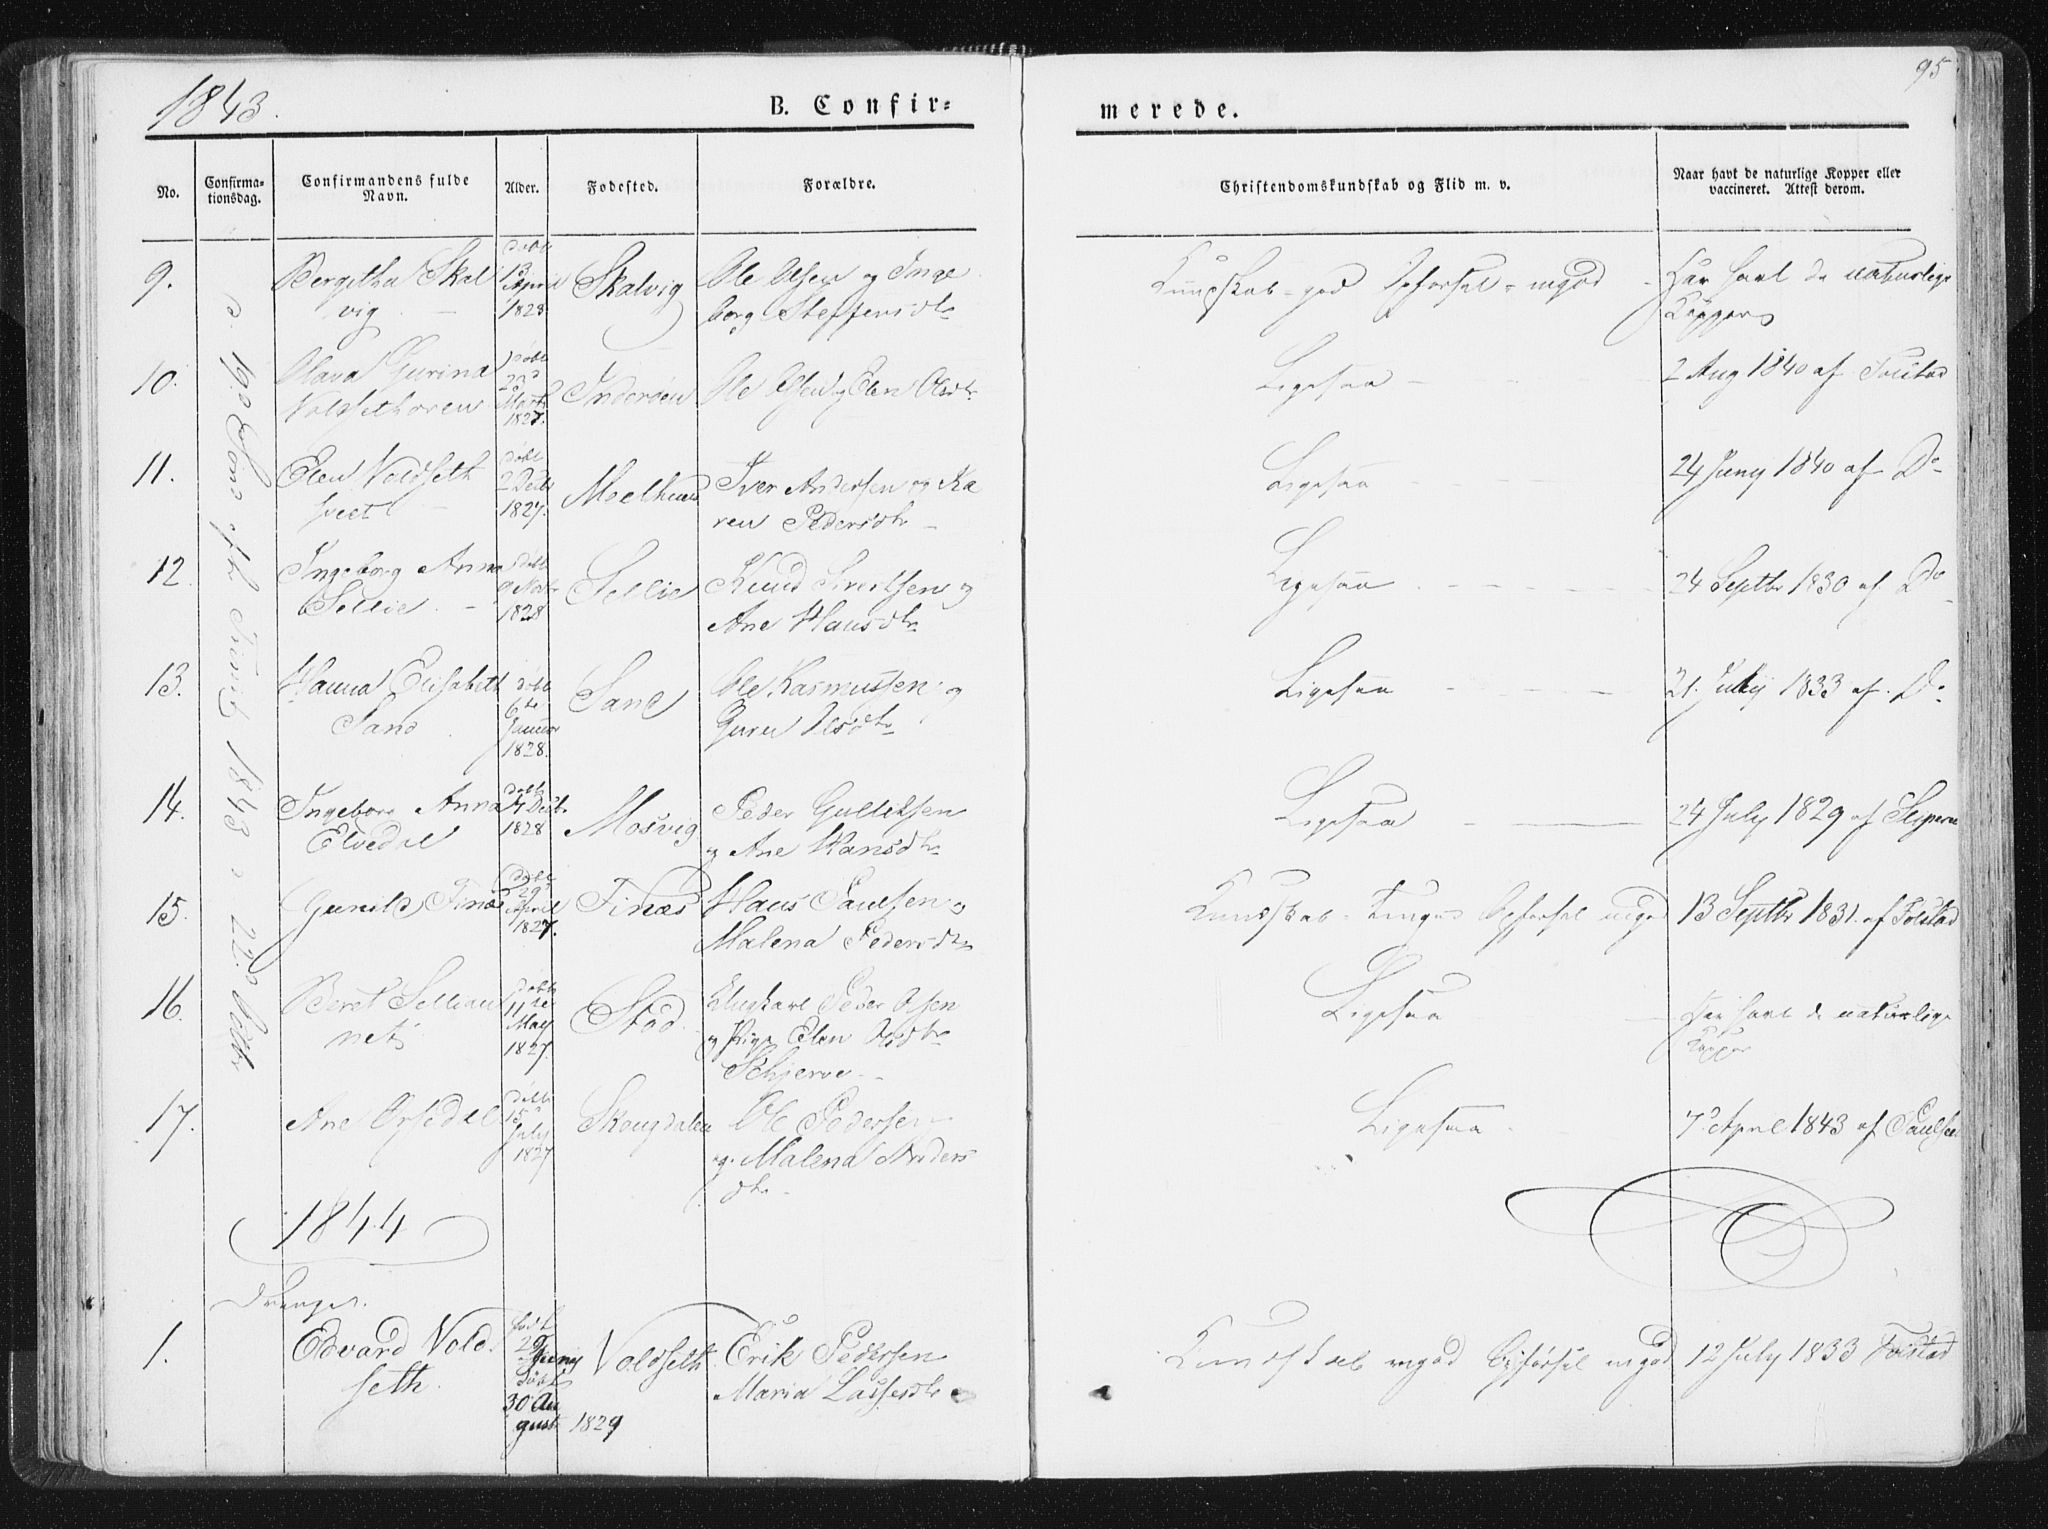 1843.
B. Confir=
merede.
95
No.
Confirma-
tionsdag.
Confirmandens fulde
Navn.
Alder.
Fødested.
Forældre.
Christendomskundskab og Flid m. v.
Naar havt de naturlige Kopper eller
vaccineret. Attest derom.
d. 19de Sønd. eft. Trinit 1843 22d Octbr
9. Bergitha Skal
vig
døbt
13
April
1828
Skalvig
Ole Olsen og Inge
borg Steffensdtr
Kundskab = god Opførsel = mgod
Har havt de naturlige
Kopper
10. Olava Gurina
Voldsethoven
døbt
Marts
1827.
Inderøen
Ole Olsen og Elen Olsdtr.
Ligesaa
2 Aug 1840 af Tolstad
11. Elen Voldseth
sveet
døbt
1827.
Moelhuus
Iver Andersen og Ka
ren Pedersdtr
Ligesaa
24 Juny 1840 af Do
12 Ingeborg Anna
Sellie
døbt
9 Novbr
1828
Sellie
Knud Sivertsen og
Ane Hansdtr
Ligesaa
24 Septbr 1830 af Do
13. Hanna Elisabeth
Sand
døbt
6te
Januar
1828.
Sand
Ole Rasmussen og
Guru Olsdtr
Ligesaa
21. July 1833 af Do
14. Ingeborg Anna
Elvedal
døbt
1828
Mosvig
Peder Gulliksen
og Ane Hansdtr
Ligesaa
24 July 1829 af
15. Gunild Tinæs
døbt
29d
April
1827.
Tinæs
Hans Paulsen og
Malena Pedersdtr
Kundskab = Opførsel mgod
13 Septbr 1831. af Tolstad
16. Beret Sellian
net
døbt
11te
May
1827.
Stod
Ungkarl Peder Olsen
og Pige Elen Olsdtr
Schjerve
Ligesaa
Har havt de naturlige
Kopper
17. Ane Orsedal
døbt
15d
July
1827
Skougdalen
Ole Pedersen
og Malena Anders
dtr
Ligesaa
7d April 1843 af Paulsen
1844
Drenge.
1. Edvard Vold
seth.
født
29
Juny
døbt
30 Au
gust 1829
Voldseth
Erik Pedersen
Maria Lassesdtr
Kundskab mgod Opførsel mgod
12 July 1833 Tolstad